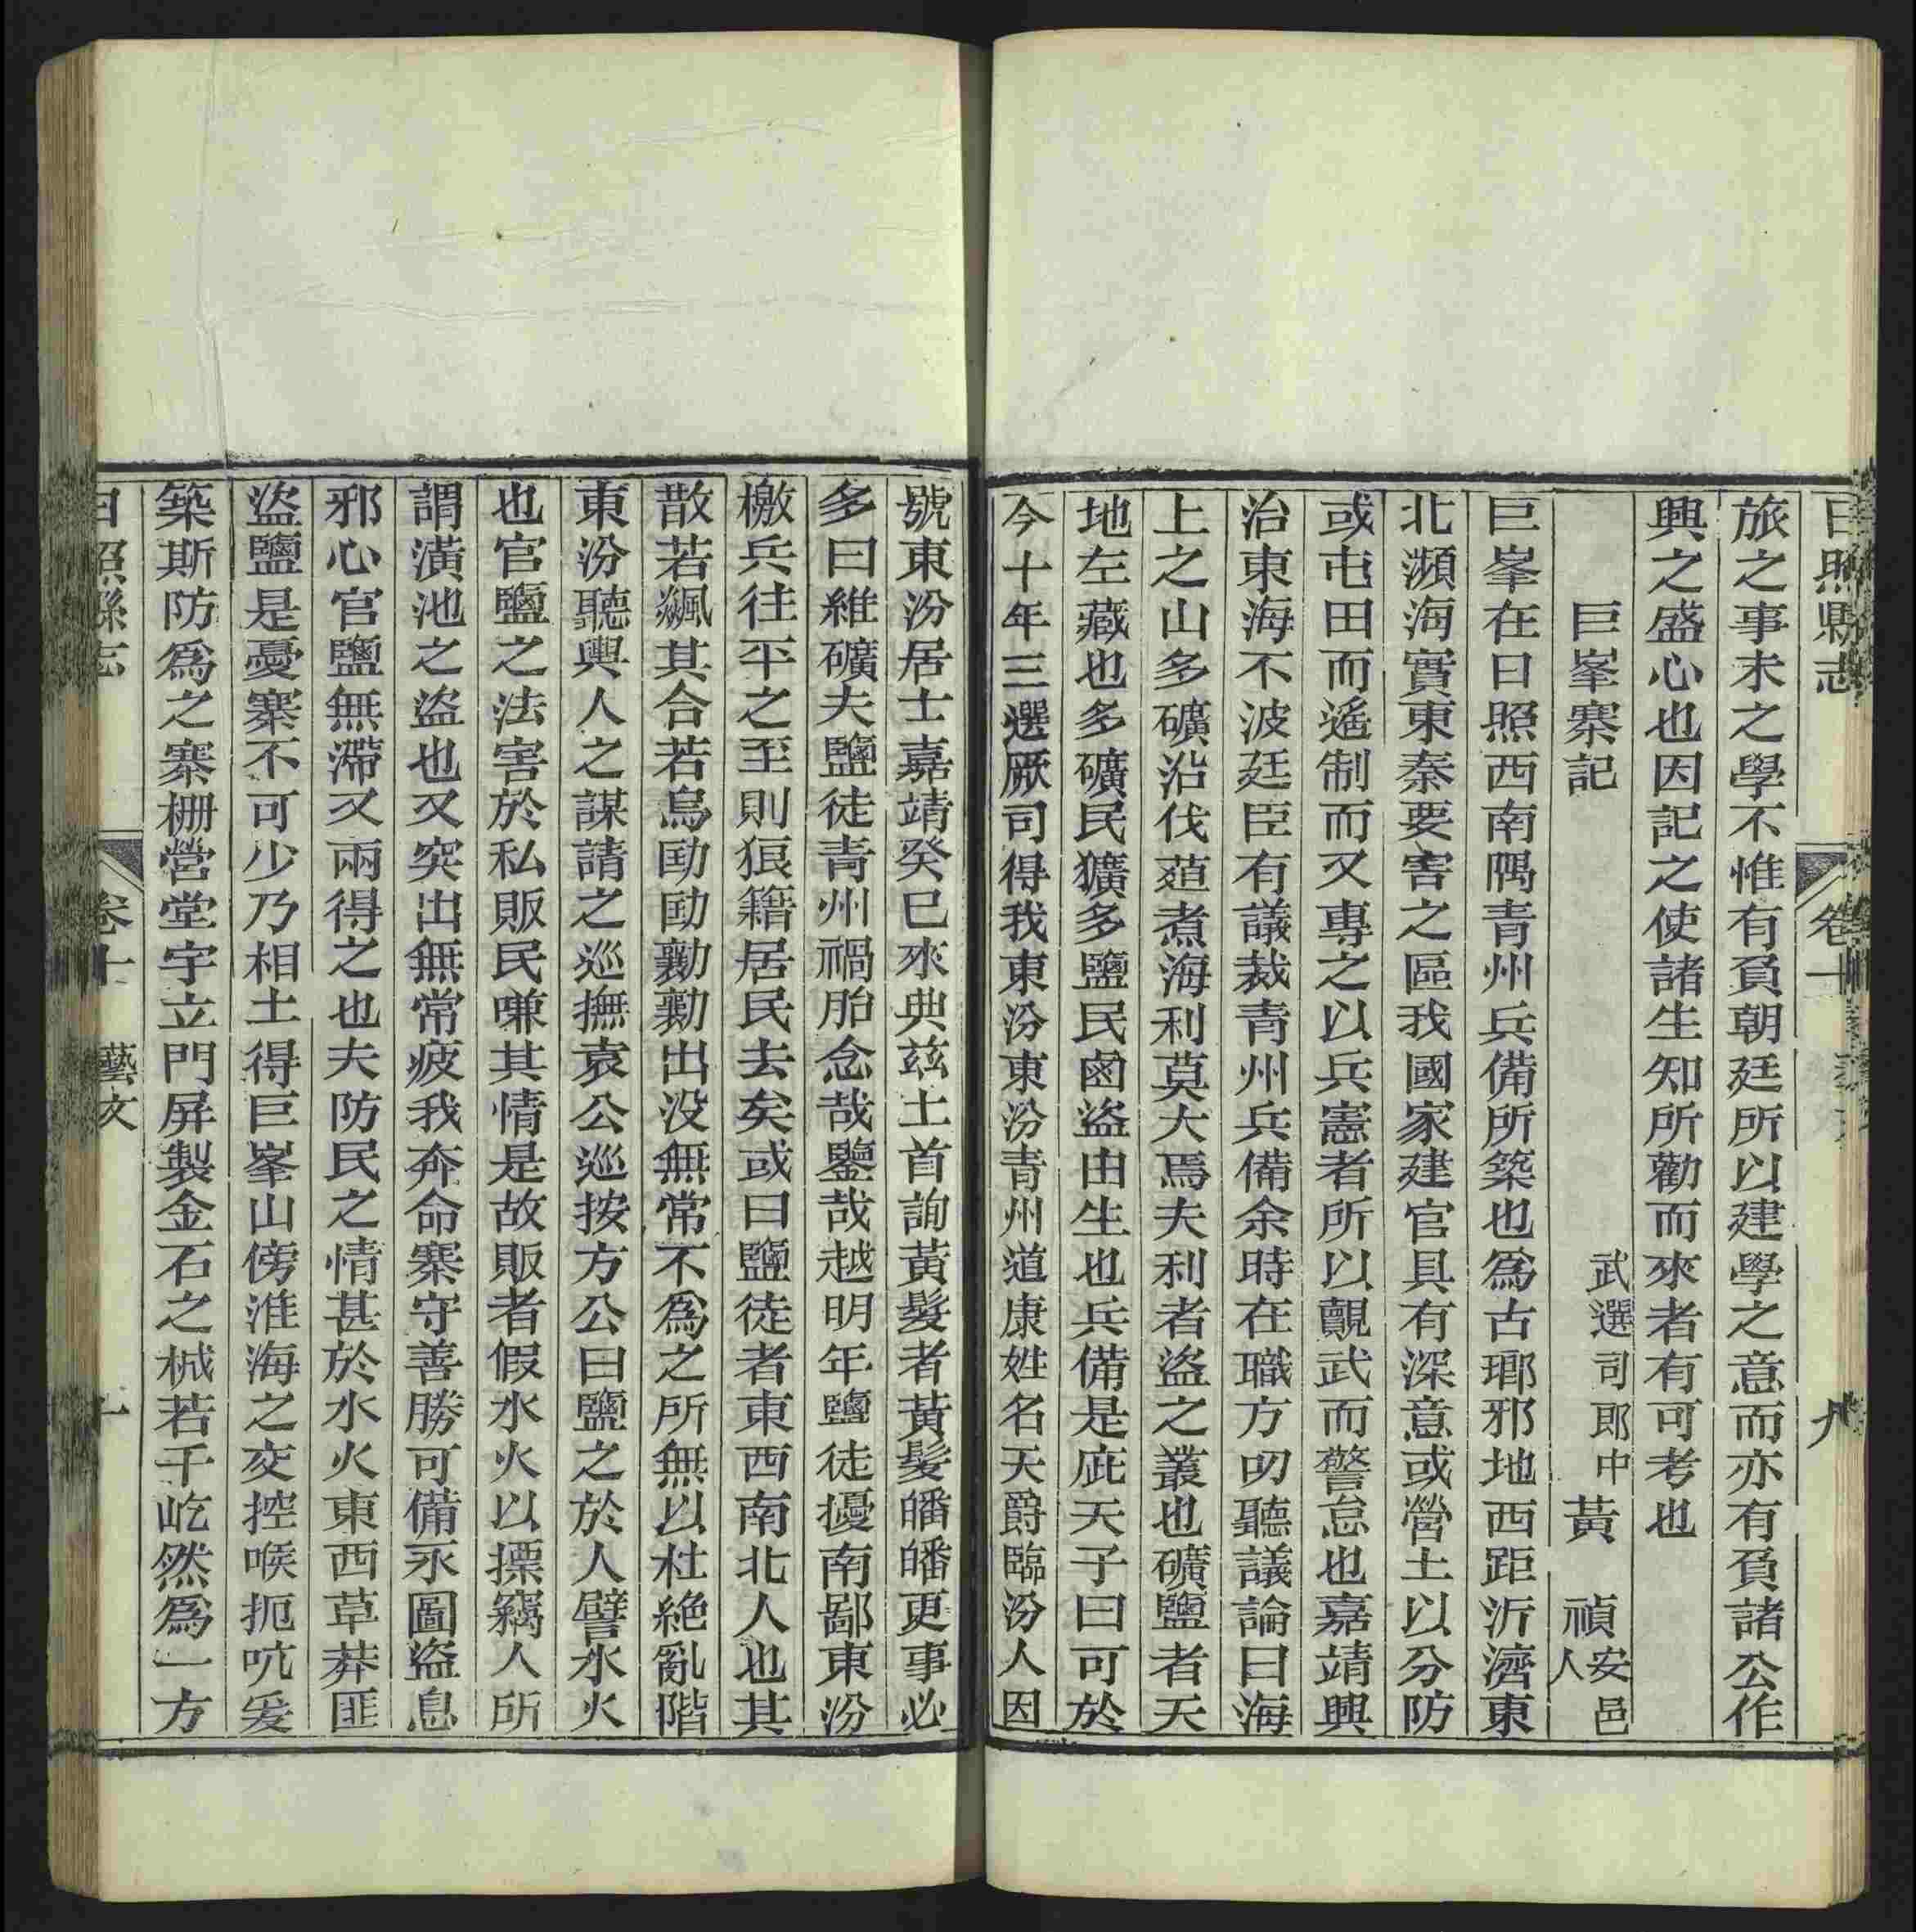 日照縣志 卷十 九
旅之事未之學不惟有負朝廷所以建學之意而亦有負諸公作
興之盛心也因記之使諸生知所勸而來者有可考也
巨峯寨記 武選司郎中黃禎安邑人
巨峯在日照西南隅青州兵備所築也為古瑯邪地西距沂濟東
北瀕海實東秦要害之區我國家建官具有深意或營土以分防
或屯田而遙制而又專之以兵憲者所以覿武而警怠也嘉靖興
治東海不波廷臣有議裁青州兵備余時在職方叨聽議論曰海
上之山多礦沿伐葅煮海利莫大焉夫利者盜之叢也礦鹽者天
地左藏也多礦民獷多鹽民鹵盜由生也兵備是庇天子曰可於
今十年三選厥司得我東汾東汾青州道康姓名天爵臨汾人因
號東汾居士嘉靖癸巳來典茲土首詢黃髮者黃髮皤皤更事必
多曰維礦夫鹽徒青州禍胎念哉鑒哉越明年鹽徒擾南鄙東汾
檄兵往平之至則狼籍居民去矣或曰鹽徒者東西南北人也其
散若飄其合若烏劻劻勷勷出没無常不為之所無以杜絶亂階
東汾聽輿人之謀請之巡撫袁公巡按方公曰鹽之於人譬水火
也官鹽之法害於私販民嗛其情是故販者假水火以摽竊人所
謂潢池之盜也又突出無常疲我奔命寨守善勝可備永圖盜息
邪心官鹽無滯又兩得之也夫防民之情甚於水火東西草莽匪
盜鹽是憂寨不可少乃相土得巨峯山傍淮海之交控喉扼吭爰
築斯防為之寨柵營堂宇立門屏製金石之械若干屹然為一方
日照縣志 卷十 藝文 十